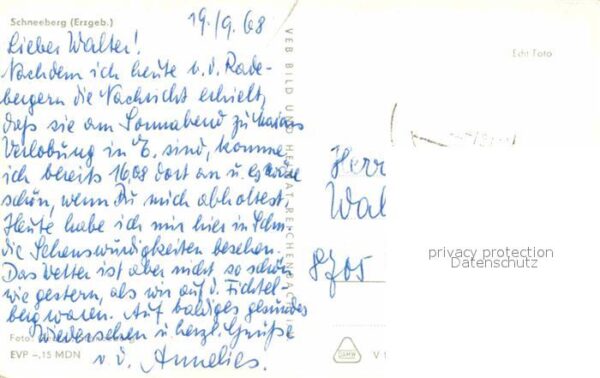 Schneeberg (Erzgeb.)
19./9. 68
Lieber Walter!
Nachdem ich heute v. d. Rade-
bergern die Nachricht erhielt,
daß sie am Sonnabend zu
Verlobung in E. sind, komme
ich bereits 16,08 dort an u. es wäre
schön, wenn Du mich abholtest.
Heute habe ich mir hier in Schn.
die Sehenswürdigkeiten besehen.
Das Wetter ist aber nicht so schön
wie gestern, als wir auf d. Fichtel-
berg waren. Auf baldiges gesundes
Wiedersehen u. herzl. Grüße
v. d. Annelies.
Foto:
EVP –,15 MDN
VEB BILD UND HEIMAT REICHENBACH
Edit Foto
Herr
Wal
8705
privacy protection
Datenschutz
DAMW
V